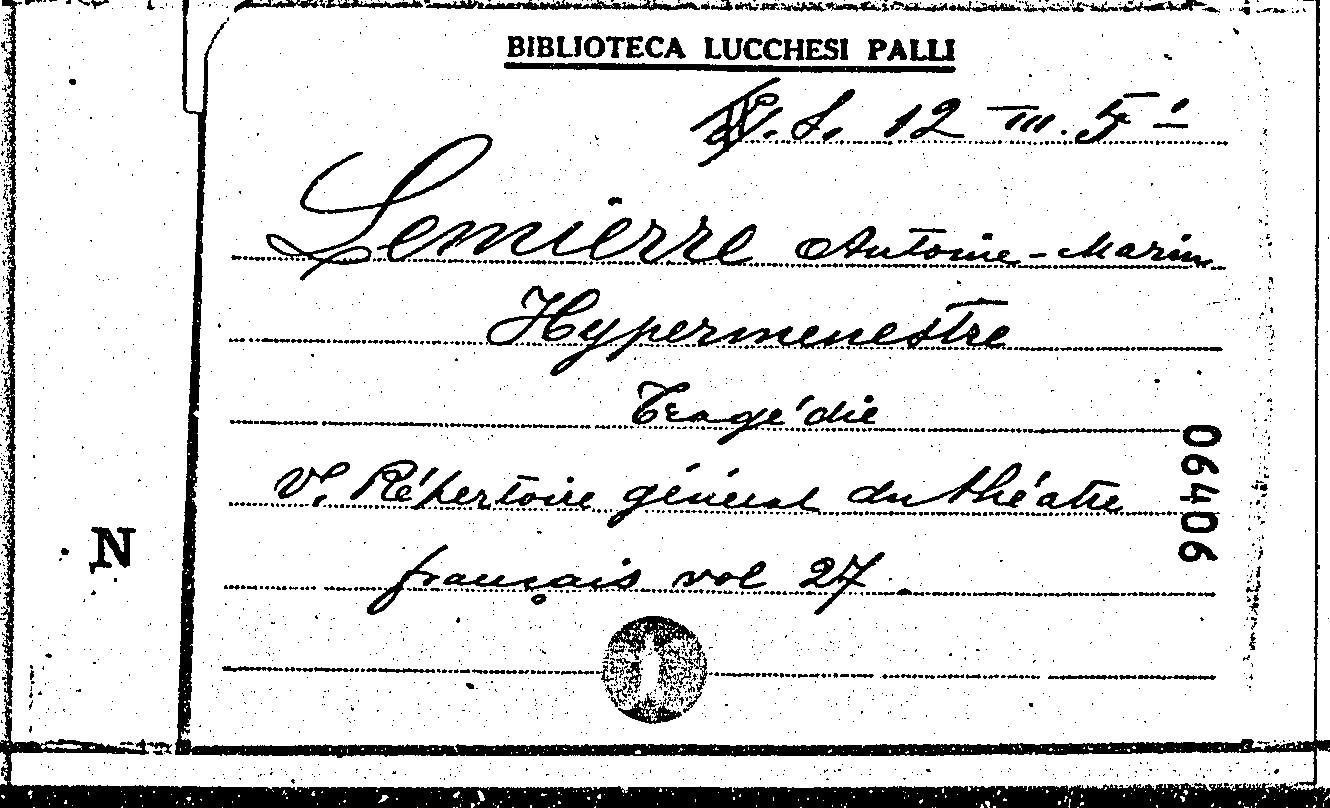 BIBLIOTECA LUCCHESI PALLI
S. 12 III. 5
Lemierre Antoine-Marin
Hypermenestre
Tragédie
V. Répertoire général du théatre
français vol 27.
06406
N